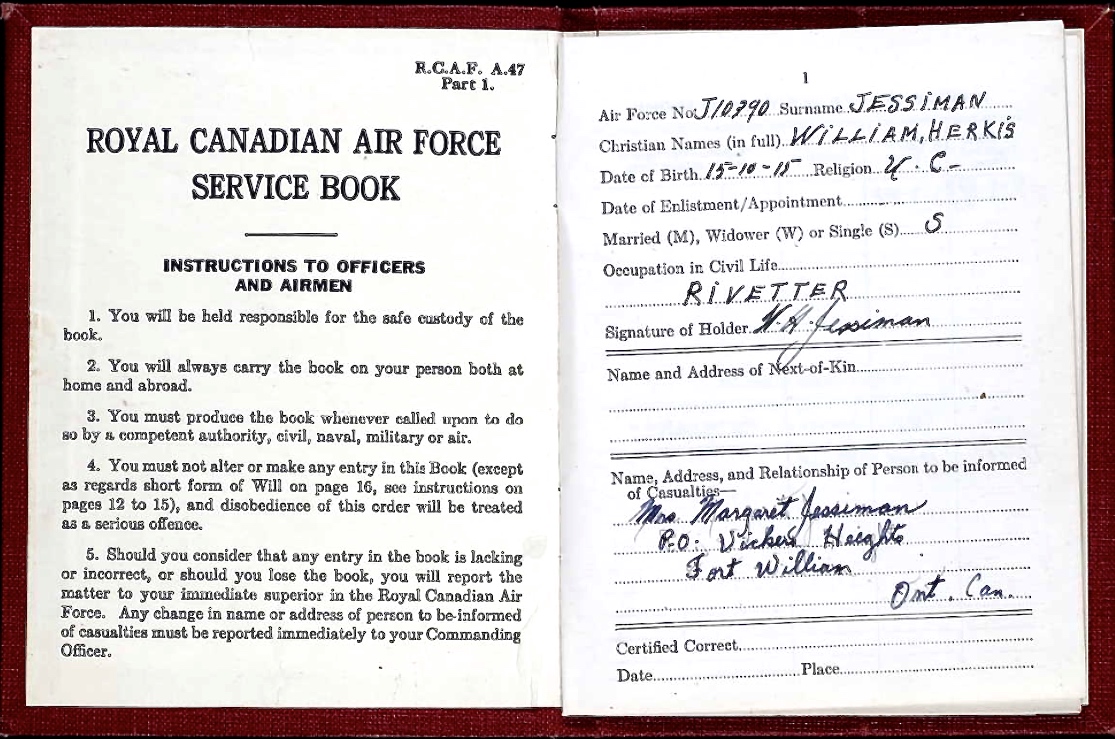 R.C.A.F. A.47
Part 1.
ROYAL CANADIAN AIR FORCE
SERVICE BOOK
INSTRUCTIONS TO OFFICERS
AND AIRMEN
1. You will be held responsible for the safe custody of the
book.
2. You will always carry the book on your person both at
home and abroad.
3. You must produce the book whenever called upon to do
so by a competent authority, civil, naval, military or air.
4. You must not alter or make any entry in this Book (except
as regards short form of Will on page 16, see instructions on
pages 12 to 15), and disobedience of this order will be treated
as a serious offence.
5. Should you consider that any entry in the book is lacking
or incorrect, or should you lose the book, you will report the
matter to your immediate superior in the Royal Canadian Air
Force. Any change in name or address of person to be informed
of casualties must be reported immediately to your Commanding
Officer.
1
Air Force No. J10290 Surname JESSIMAN
Christian Names (in full) WILLIAM, HERKIS
Date of Birth 15-10-15 Religion U.C-
Date of Enlistment/Appointment
Married (M), Widower (W) or Single (S) S
Occupation in Civil Life
RIVETTER
Signature of Holder W.H. Jessiman
Name and Address of Next-of-Kin
Name, Address, and Relationship of Person to be informed
of Casualties—
Mrs Margaret Jessiman
P.O. Vickers Heights
Fort William
Ont. Can.
Certified Correct
Date Place